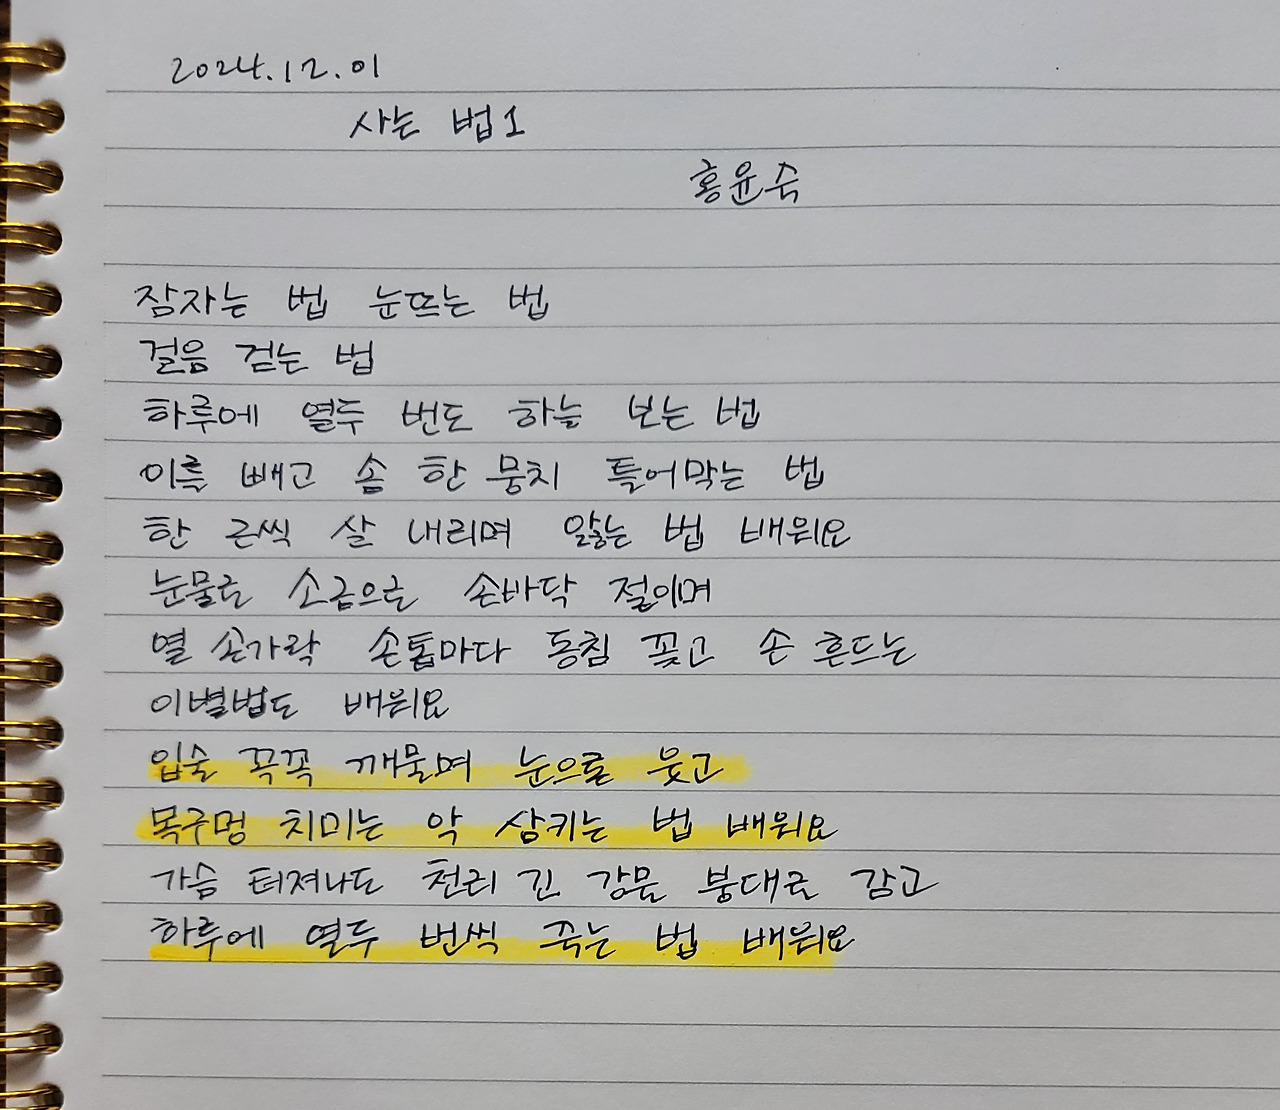 2024.12.01
사는 법1
홍윤숙
잠자는 법 눈뜨는 법
걸음 걷는 법
하루에 열두 번도 하늘 보는 법
이를 빼고 솜 한 뭉치 틀어막는 법
한 근씩 살 내리며 앓는 법 배워요
눈물로 소금으로 손바닥 절이며
열 손가락 손톱마다 동침 꽂고 손 흔드는
이별법도 배워요
입술 꼭꼭 깨물며 눈으로 웃고
목구멍 치미는 악 삼키는 법 배워요
가슴 터져나도 천리 긴 강물 붕대로 감고
하루에 열두 번씩 죽는 법 배워요